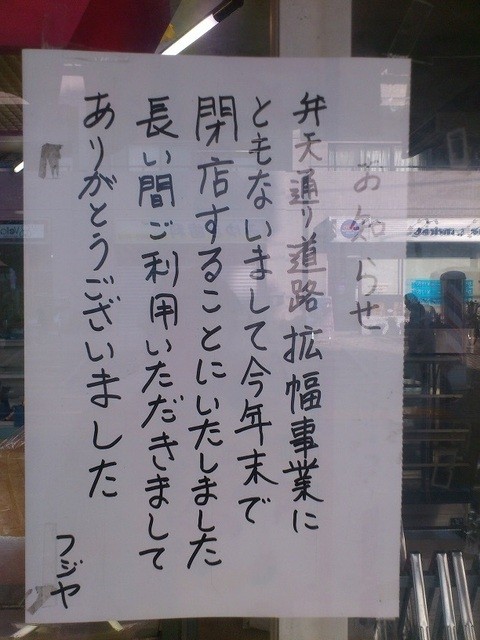 お知らせ
弁天通り道路拡幅事業に
ともないまして今年末で
閉店することにいたしました
長い間ご利用いただきまして
ありがとうございました
フジヤ